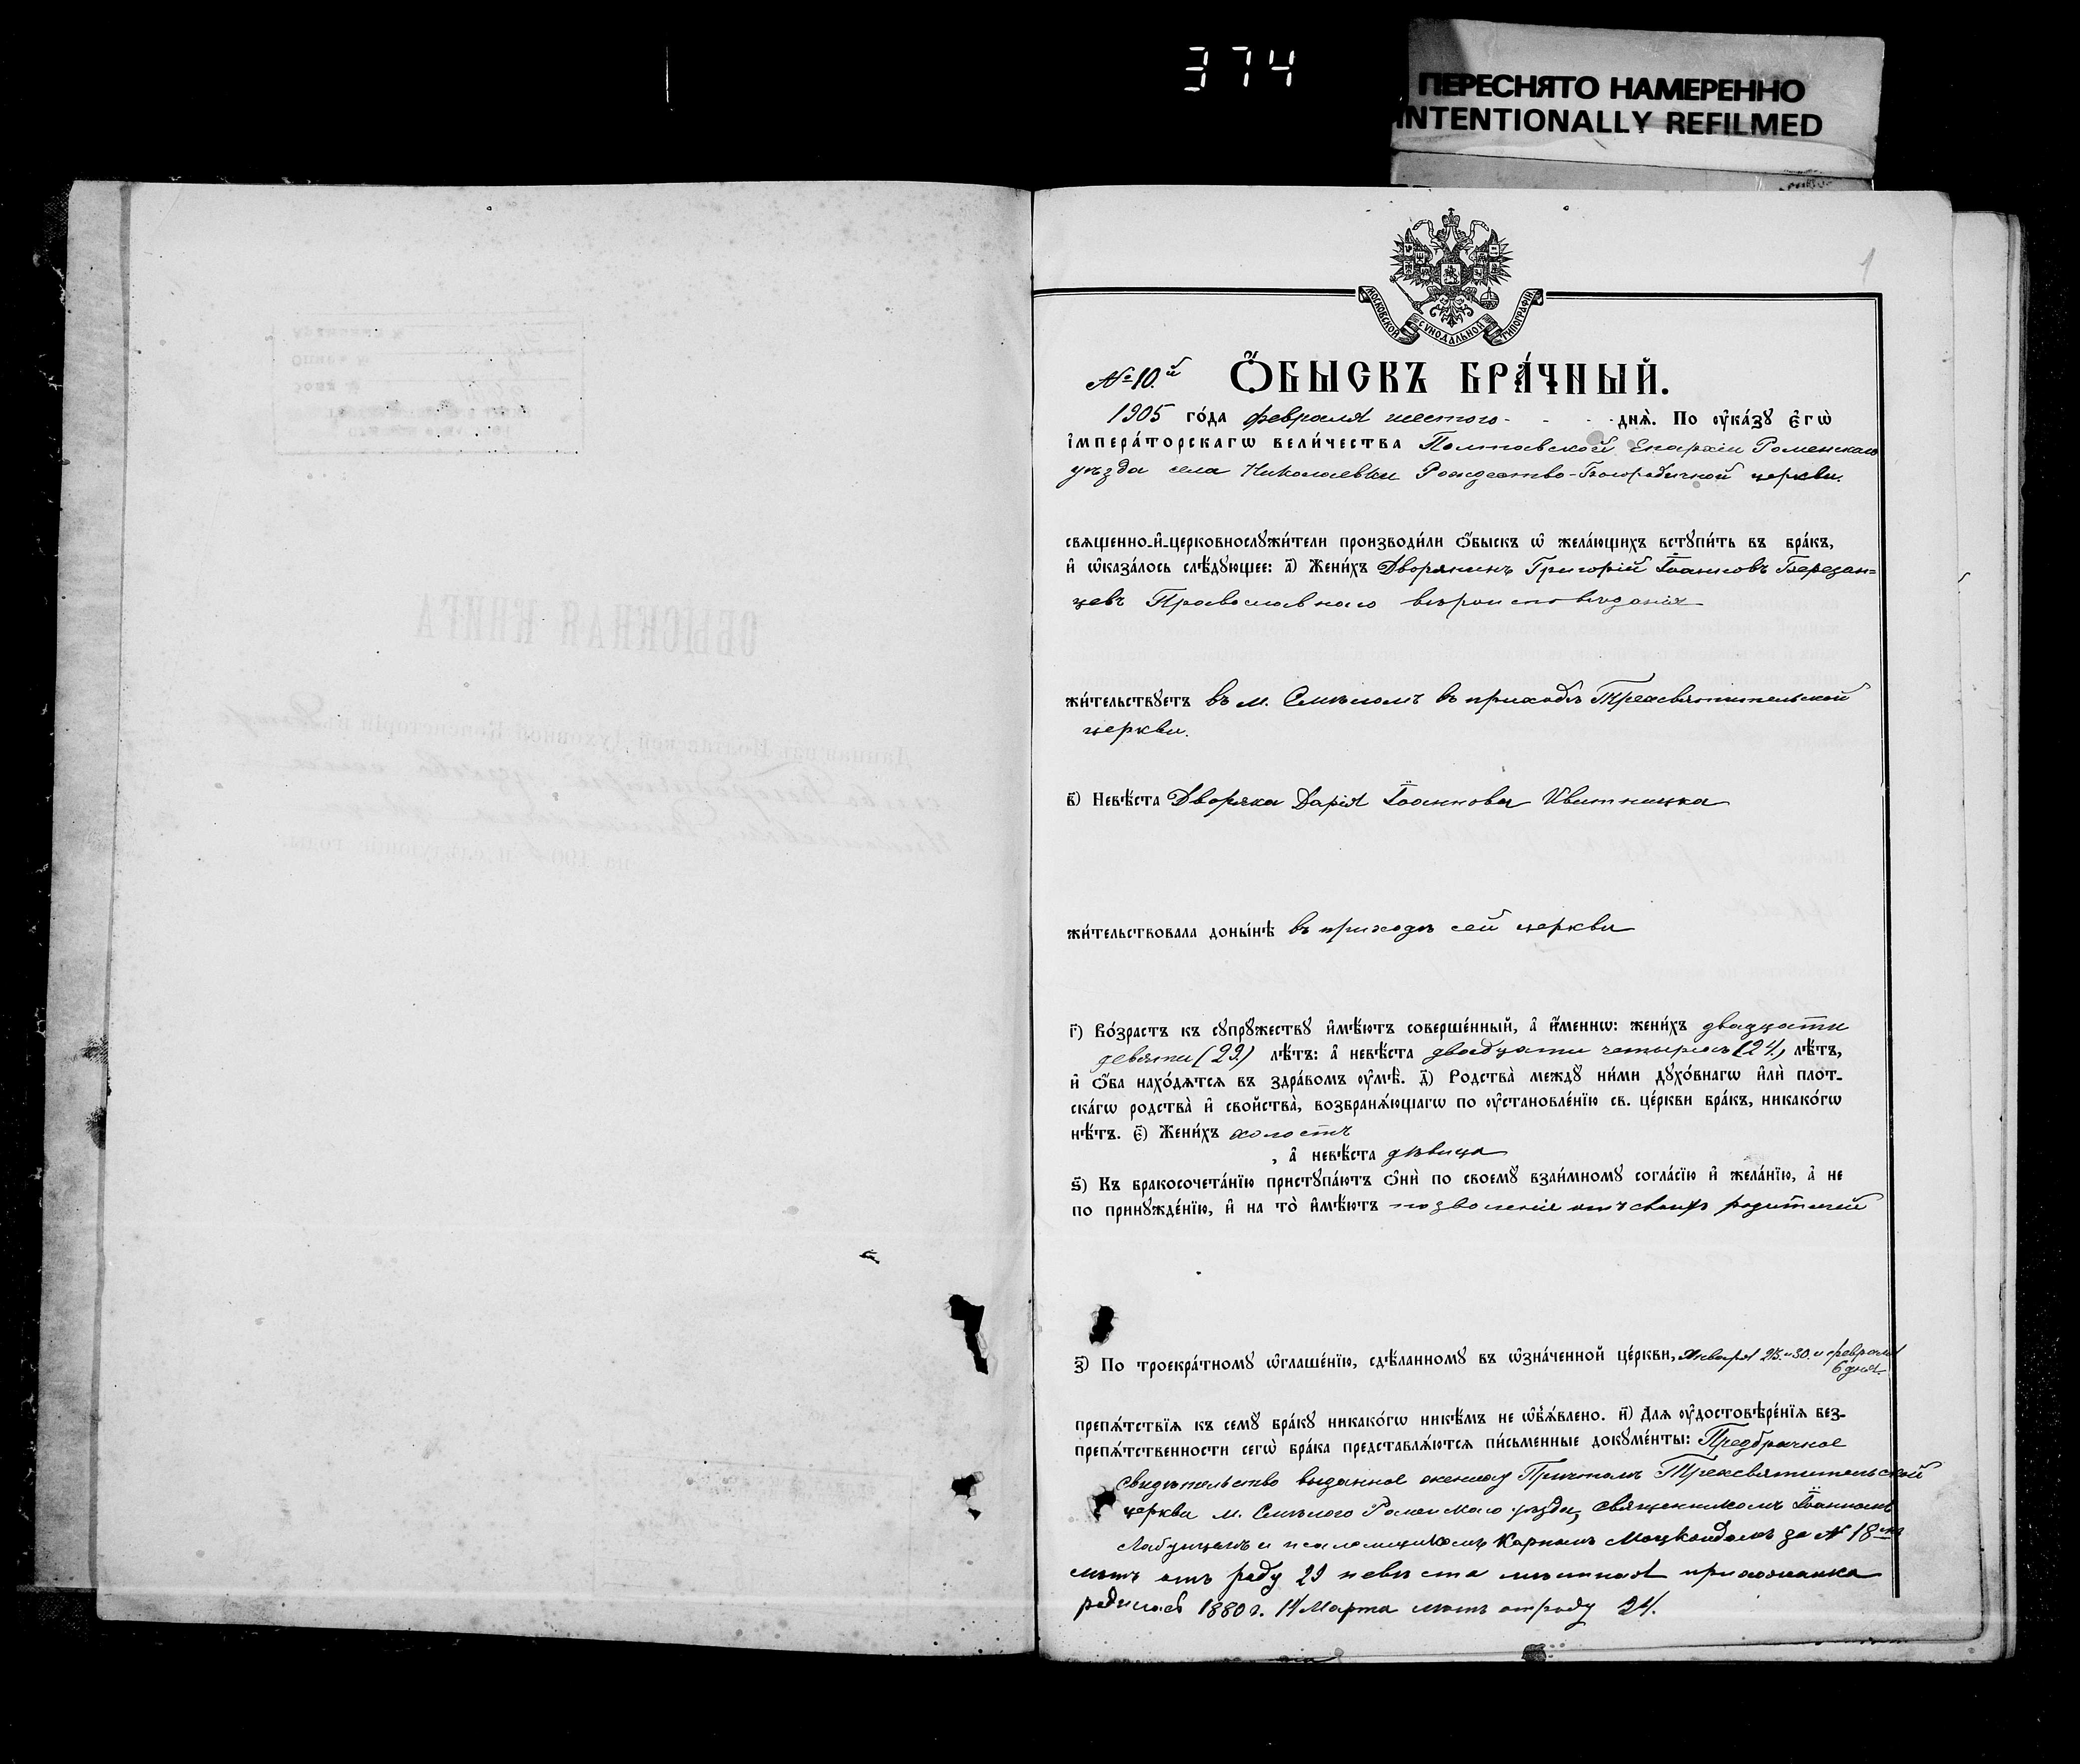 374
ПЕРЕСНЯТО НАМЕРЕННО
INTENTIONALLY REFILMED
1
МОСКОВСКОЙ СѴНОДАЛЬНОЙ ТИПОГРАФІИ
№ 10.й Ѻ҆БЫСКЪ БРА́ЧНЫЙ.
1905 го́да февраля шестого - - - днѧ̀. По ᲂу҆ка́зꙋ є҆гѡ̀
і҆мпера́торскагѡ вели́чества Полтавской Епархіи Роменскаго
уѣзда села Николаевки Рождество-Богородичной церкви.
свѧщенно-и҆-церковнослꙋжи́тели производи́ли ѻ҆́быскъ ѡ҆ жела́ющихъ встꙋпи́ть въ бра́къ,
и҆ ѡ҆каза́лось слѣ́дꙋющее: а҃) Жени́хъ Дворянинъ Григорій Іоанновъ Березан=
цевъ Православнаго вѣроисповѣданія
жи́тельствꙋетъ въ м. Смѣломъ въ приходѣ Трехсвятительской
церкви.
в҃) Невѣ́ста Дворянка Дарія Іоаннова Квитницка
жи́тельствовала доны́нѣ въ приходѣ сей церкви
г҃) Во́зрастъ къ сꙋпрꙋ́жествꙋ и҆мѣ́ютъ соверше́нный, а҆ и҆́меннѡ: жени́хъ двадцати
девяти (29) лѣ́тъ: а҆ невѣ́ста двадцати четырехъ (24) лѣ́тъ,
и҆ ѻ҆́ба нахо́дѧтсѧ въ здра́вомъ ᲂу҆мѣ̀. д҃) Родства̀ междꙋ ни́ми дꙋхо́внагѡ и҆лѝ плот-
ска́гѡ родства̀ и҆ свойства̀, возбранѧ́ющагѡ по ᲂу҆становле́нїю св. це́ркви бра́къ, никако́гѡ
нѣ́тъ. є҃) Жени́хъ холостъ
, а҆ невѣ́ста дѣвица
ѕ҃) Къ бракосочета́нїю пристꙋпа́ютъ ѻ҆нѝ по своемꙋ̀ взаи́мномꙋ согла́сїю и҆ жела́нїю, а҆ не
по принꙋжде́нїю, и҆ на то̀ и҆мѣ́ютъ позволеніе отъ своихъ родителей
з҃) По троекра́тномꙋ ѡ҆глаше́нїю, сдѣ́ланномꙋ въ ѡ҆зна́ченной це́ркви, Января 23. и 30. и февраля
6 дня
препѧ́тствїѧ къ семꙋ̀ бра́кꙋ никако́гѡ никѣ́мъ не ѡ҆б̾ѧ́влено. и҃) Длѧ ᲂу҆достовѣре́нїѧ без-
препѧ́тственности сегѡ̀ бра́ка представлѧ́ютсѧ пи́сьменные докꙋме́нты: Предбрачное
свидѣтельство выданное жениху Причтомъ Трехсвятительской
церкви м. Смѣлого Роменского уѣзда, священникомъ Іоанномъ
и псаломщикомъ Карпомъ за № 18
лѣтъ отъ роду 29 невѣста мѣстная прихожанка
родилась 1880 г. 14 Марта лѣтъ отъ роду 24.